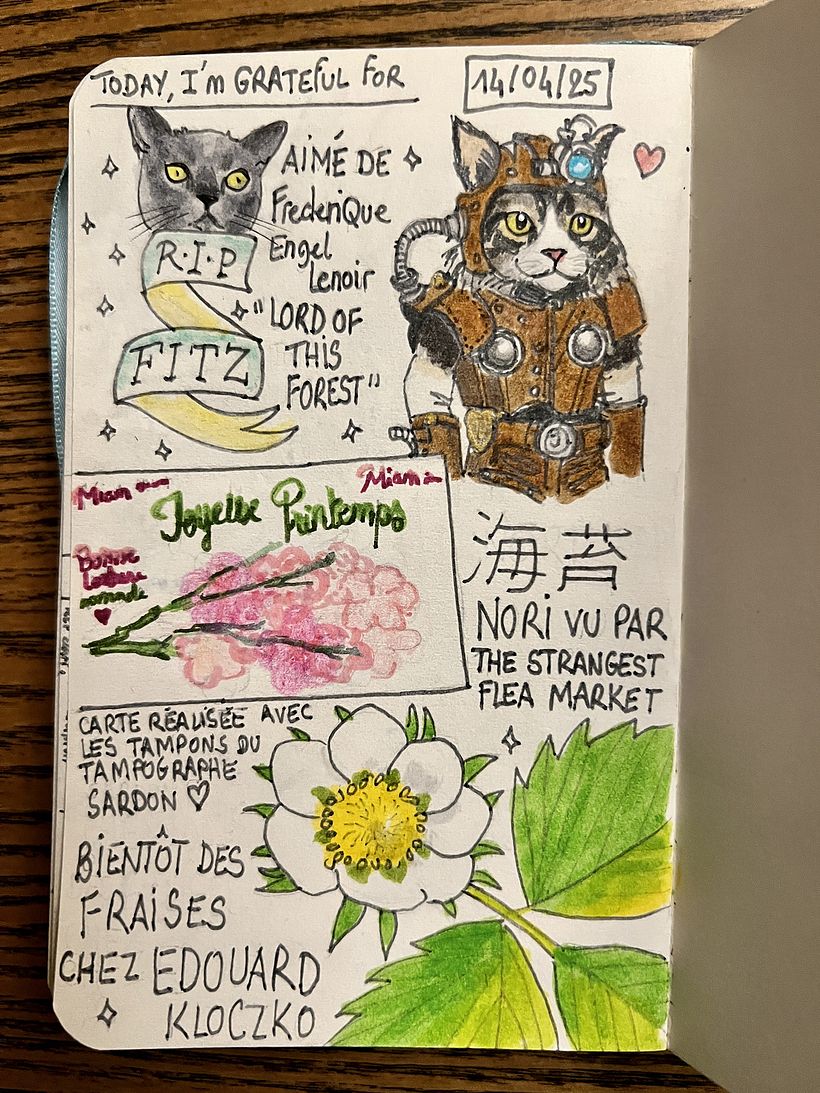 TODAY, I'm GRATEFUL FOR
14/04/25
AIMÉ DE
FredeRiQue
Engel
Lenoir
"LORD OF
THIS
FOREST"
R·I·P
FITZ
Miam
Miam
Joyeux Printemps
Bonne
nomade
海苔
NORI VU PAR
THE STRANGEST
FLEA MARKET
CARTE RÉALISÉE AVEC
LES TAMPONS DU
TAMPOGRAPHE
SARDON
BIENTÔT DES
FRAISES
CHEZ EDOUARD
KLOCZKO